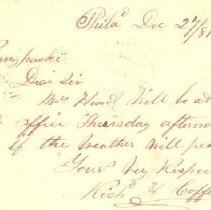 Phila Dec 27/81
Dear Sir
Mrs Hund will be at
office Thursday afternoo
if the weather will pe
Your Very Respec
Rich H Coff